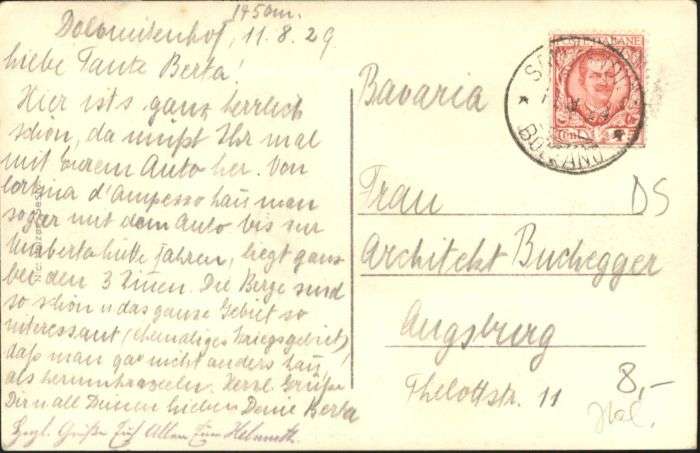 1450m.
Dolomitenhof, 11.8.29
Liebe Tante Berta!
Hier ist's ganz herrlich
schön, da müßt Ihr mal
mit Eurem Auto her. Von
Cortina d'Ampezzo kann man
sogar mit dem Auto bis zur
Umbertohütte fahren, liegt ganz
bei den 3 Zinnen. Die Berge sind
so schön u das ganze Gebiet so
interessant (ehemaliges Kriegsgebiet),
daß man gar nicht anders kann
als herumkraxeln. Herzl. Grüße
Dir u all Deinen Lieben Deine Berta
Herzl. Grüße Euch Allen Euer Helmuth
Bavaria
Frau
Architekt Buchegger
Augsburg
Thelottstr. 11
DS
8,-
Ital.
BOLZANO